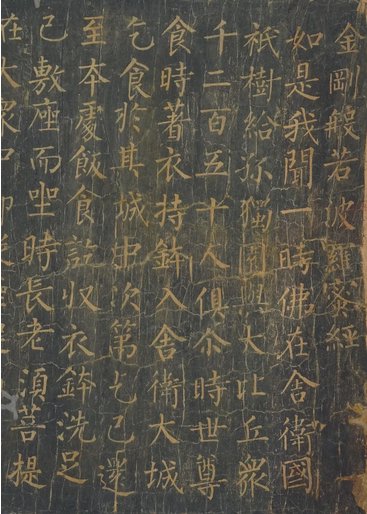 金剛般若波羅蜜經
如是我聞一時佛在舍衛國
祇樹給孤獨園與大比丘衆
千二百五十人俱尒時世尊
食時著衣持鉢入舍衛大城
乞食於其城中次第乞已還
至夲處飯食訖収衣鉢洗足
已敷座而坐時長老須菩提
在大衆中即從